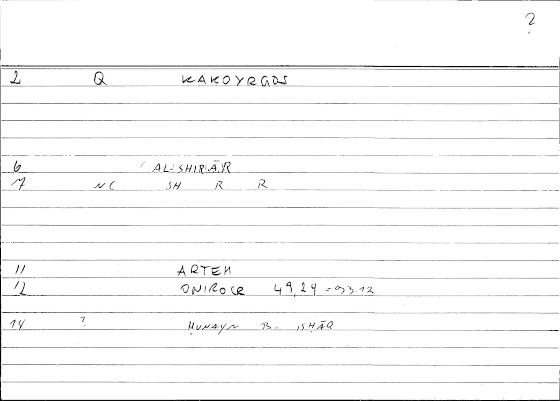 ?
2 Q KAKOYRGOS
6 AL-SHIRĀR
7 NC SH R R
11 ARTEM
12 ONIROCR 49,24 = 93.12
14 ? ḤUNAYN B. ISḤĀQ